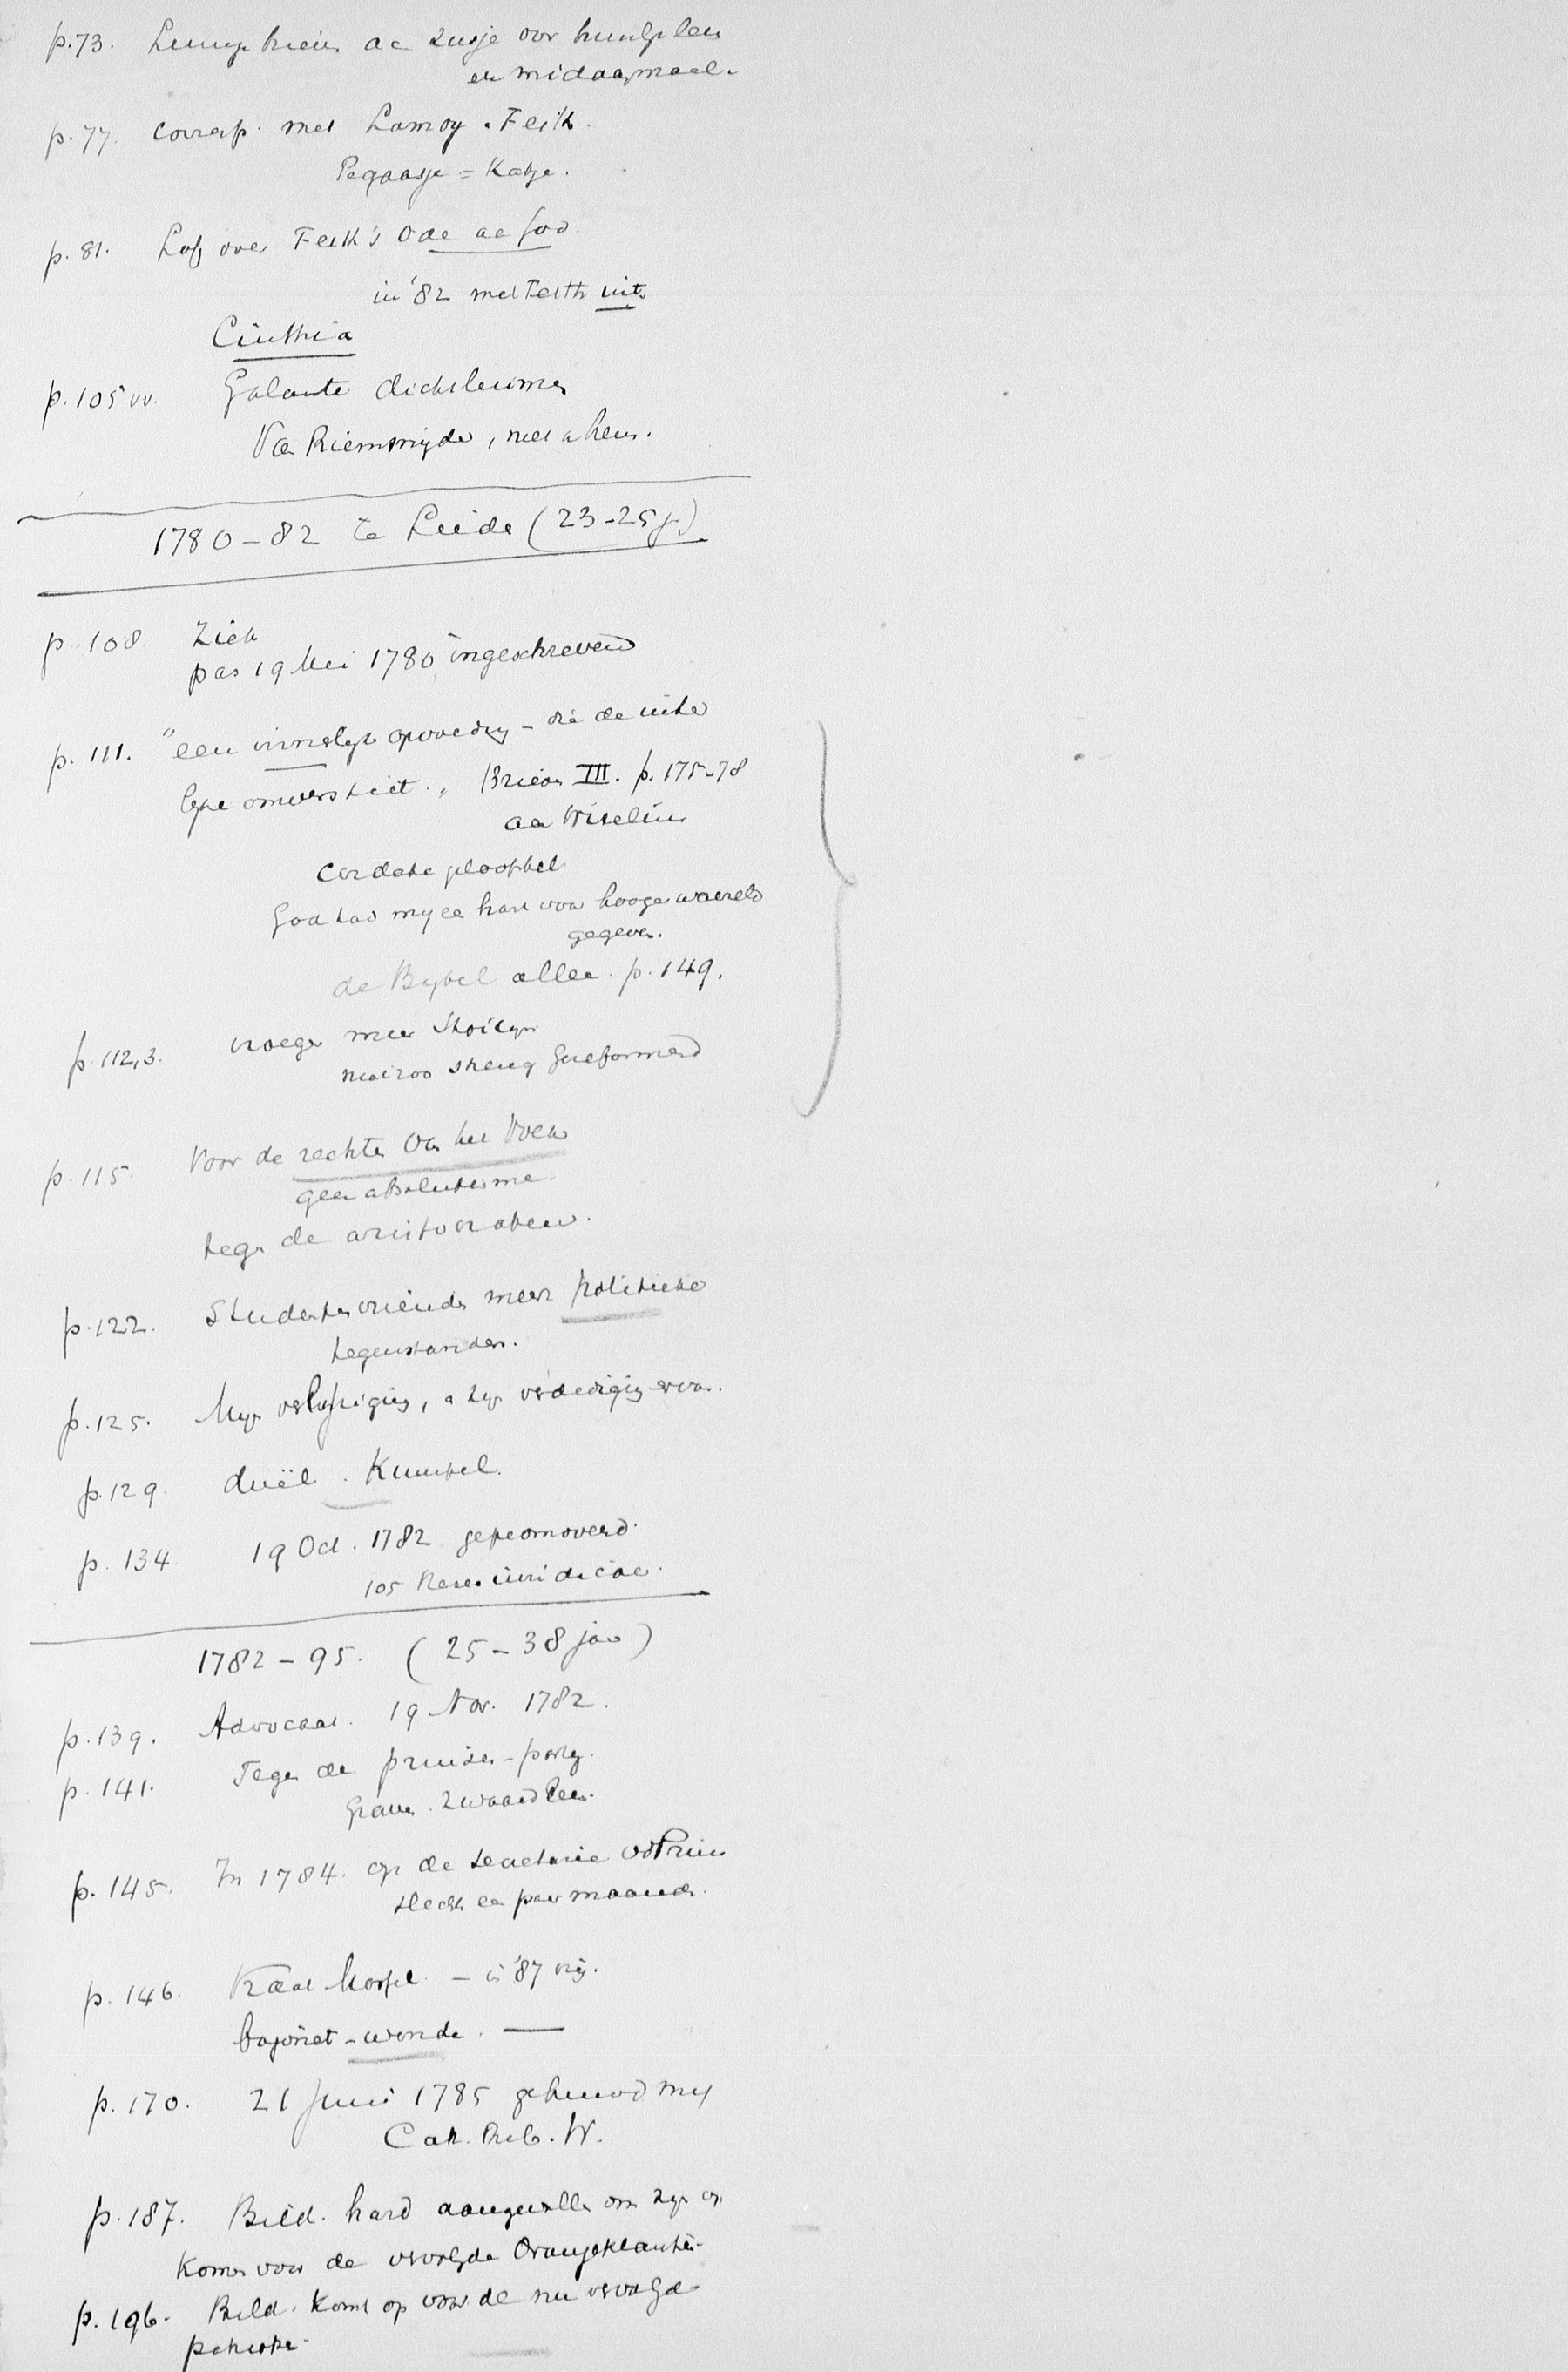 p.73. aa zusje over huwlyk
en middagmaal.
p.77. corresp. met Lamoy. Feith.
Pegaasje = Katje.
p.81. Lof over Feith's Ode aa God.
in '82 met Feith uit.
Cinthia
p.105 vv. Galante
Va Riemsnyder, niet
1780-82 te Leide (23-25 j.)
p.108. Ziek
pas 19 Mei 1780 ingeschreven
p.111. "een opvoeding - die de
omverstiet." Brieven III. p.175-78
aa Wiselius
cordate
God had my ee hart voor hooger waereld
gegeven.
de Bybel allee. p.149.
p.112,3. vroeger meer Stoicyn
niet zoo streng Gereformeerd
p.115. Voor de rechten van het Volk
geen absolutisme.
tegen de aristocraten.
p.122. Studentenvrienden meer politieke
tegenstanders.
p.125. Myn, e zyn verdediging ervan.
p.129. duël. Kumpel.
p.134. 19 Oct. 1782 gepromoveerd.
105 Theses iuridicae.
1782-95. (25-38 jaar)
p.139. Advocaat. 19 Nov. 1782.
p.141. Tegen de pruiken-party.
Graven. Zwaardleen.
p.145. In 1784. op de secretarie v d Prins
slechts een paar maanden.
p.146. Kaat Mossel. - in '87 vrij.
bajonet-wonde. —
p.170. 21 Juni 1785 gehuwd met
Cath. Reb. W.
p.187. Bild. hard aangevallen om zyn op
komen voor de vervolgde Oranjeklanten.
p.196. Bild. komt op voor de nu vervolgde
patriotten.